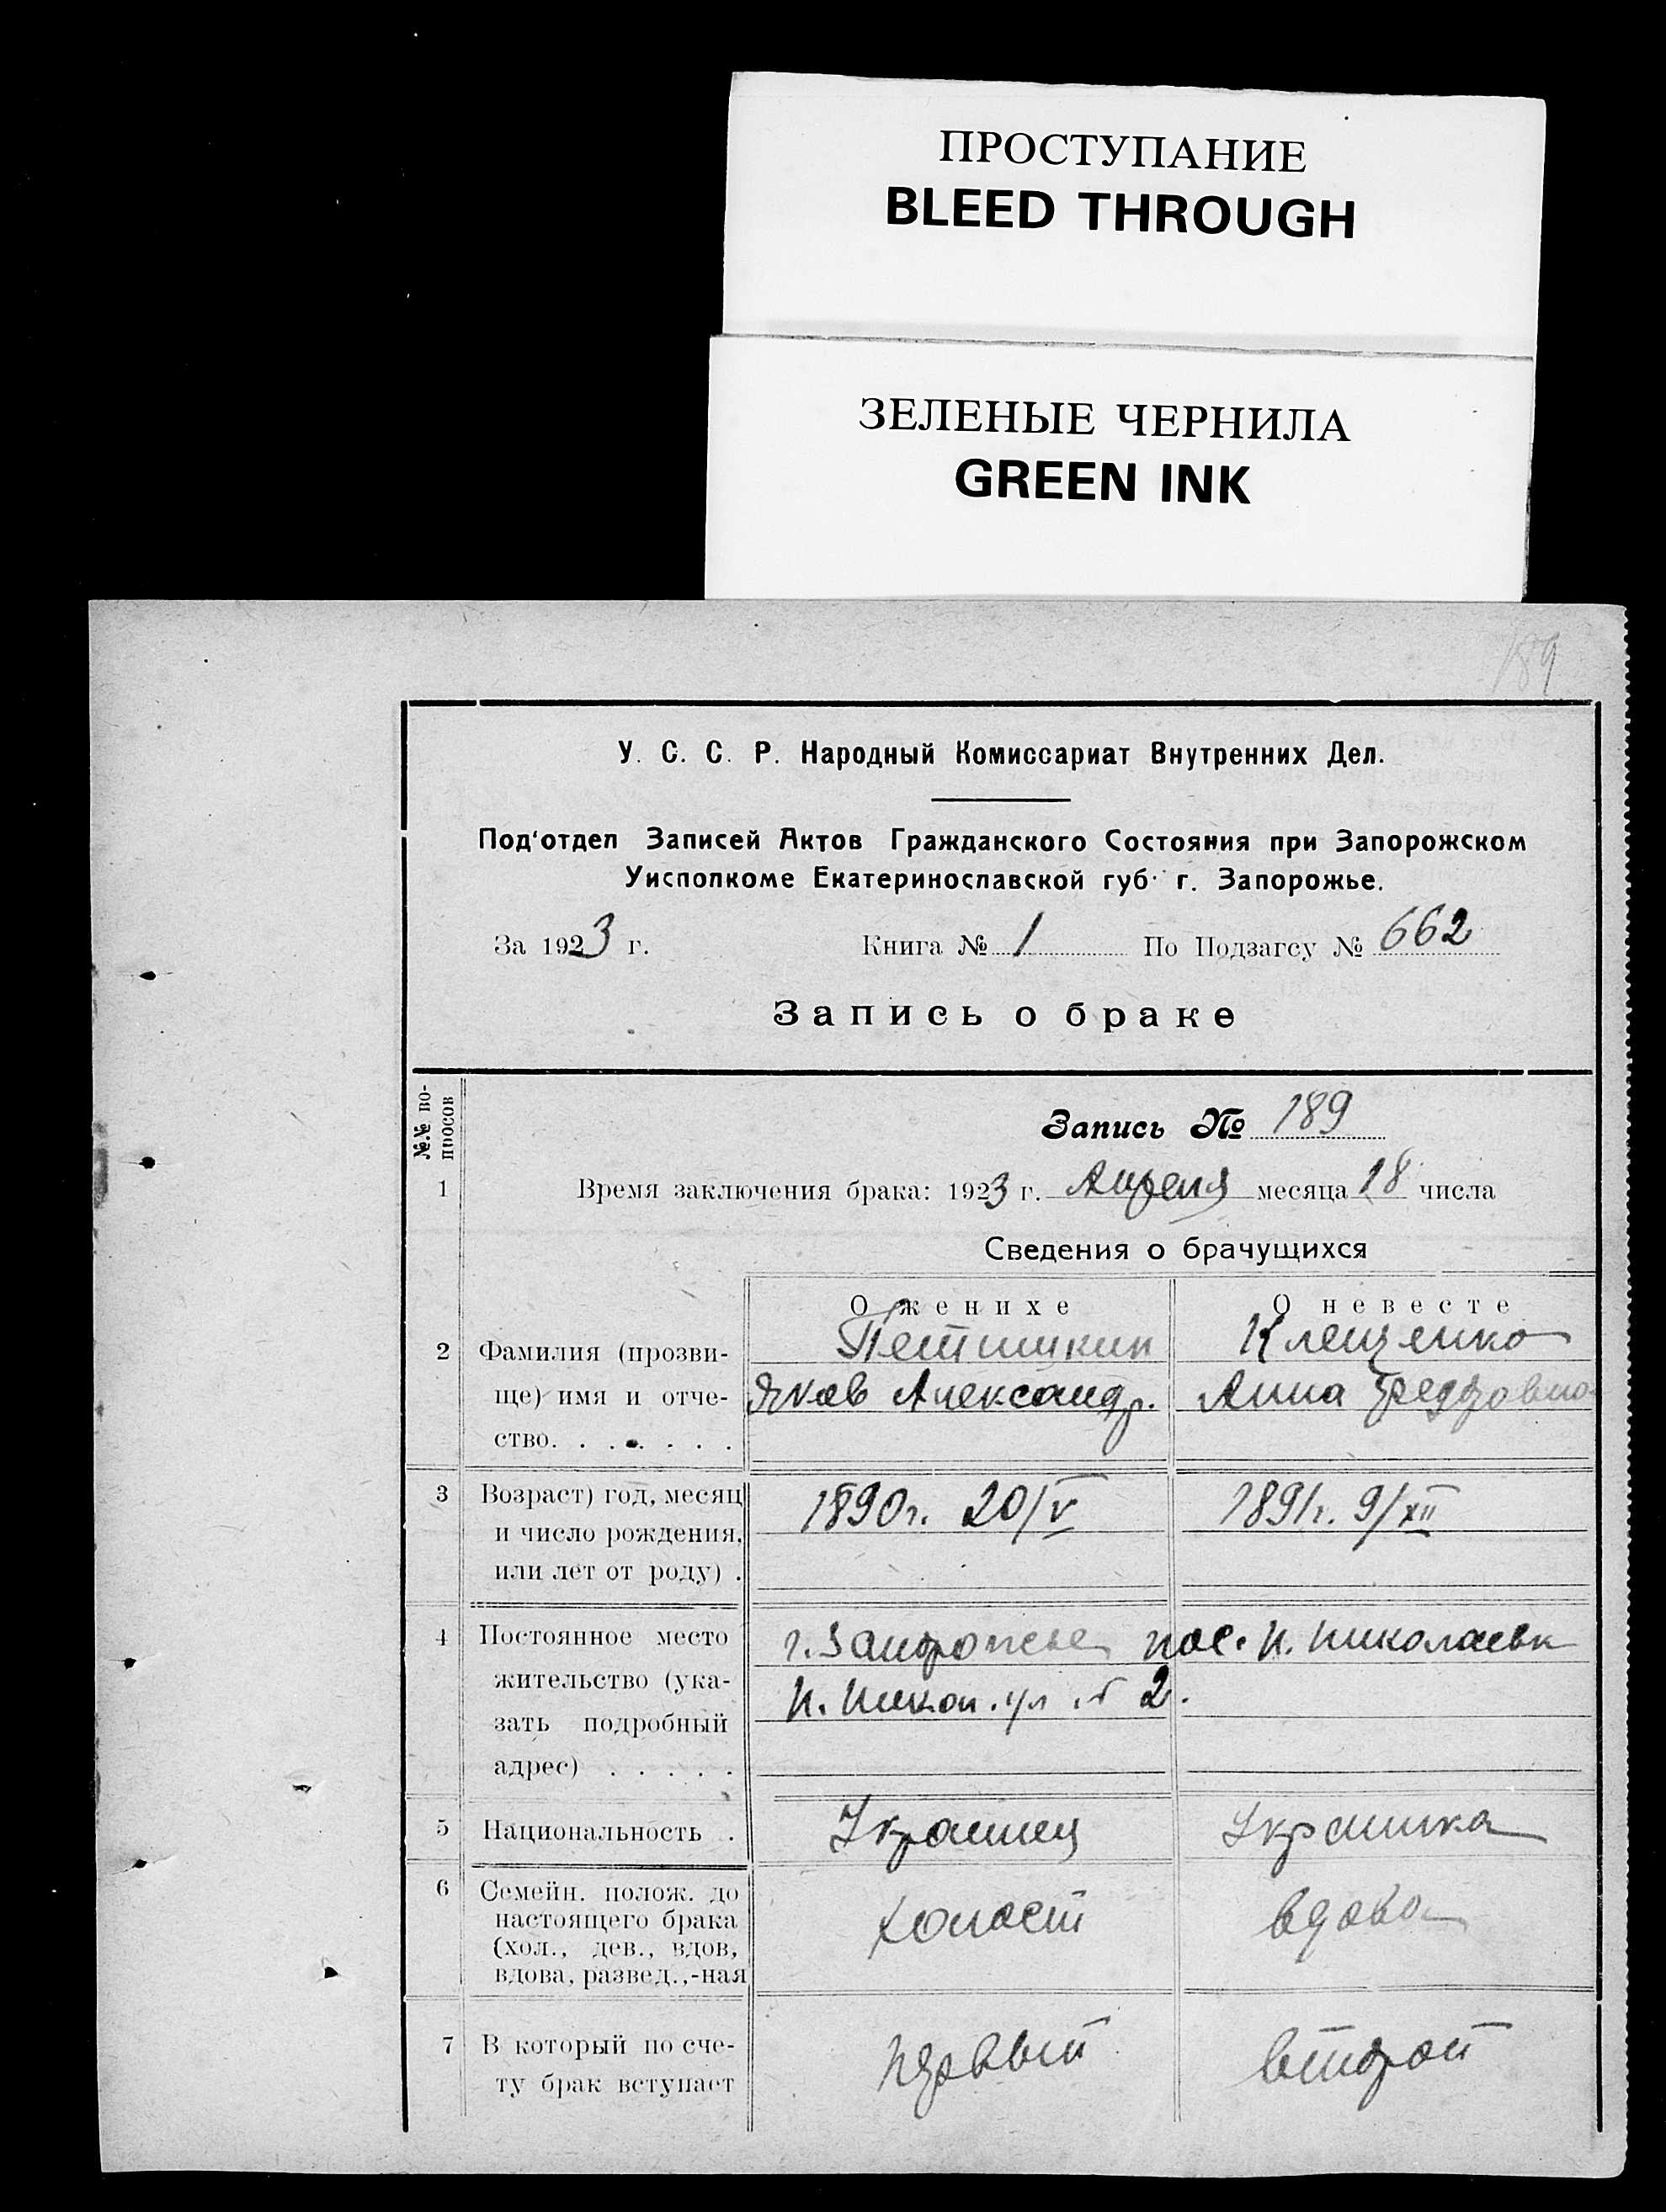 ПРОСТУПАНИЕ
BLEED THROUGH
ЗЕЛЕНЫЕ ЧЕРНИЛА
GREEN INK
189
У. С. С. Р. Народный Комиссариат Внутренних Дел.
Под'отдел Записей Актов Гражданского Состояния при Запорожском
Уисполкоме Екатеринославской губ. г. Запорожье.
За 1923 г. Книга № 1 По Подзагсу № 662
Запись о браке
№.№ во-
просов
Запись № 189
1 Время заключения брака: 1923 г. Апреля месяца 18 числа
Сведения о брачущихся
О женихе О невесте
2 Фамилия (прозви- Петишкин Клещенко
ще) имя и отче- Яков Александр. Анна Федоровна
ство. . . . . . .
3 Возраст) год, месяц 1890г. 20/V 1891г. 9/XII
и число рождения,
или лет от роду) .
4 Постоянное место г. Запорожье пос. Н. Николаевк
жительство (ука- Н. Никол. ул № 2.
зать подробный
адрес) . . . . .
5 Национальность . Украинец Украинка
6 Семейн. полож. до
настоящего брака холост вдова
(хол., дев., вдов,
вдова, развед.,-ная
7 В который по сче- первый второй
ту брак вступает